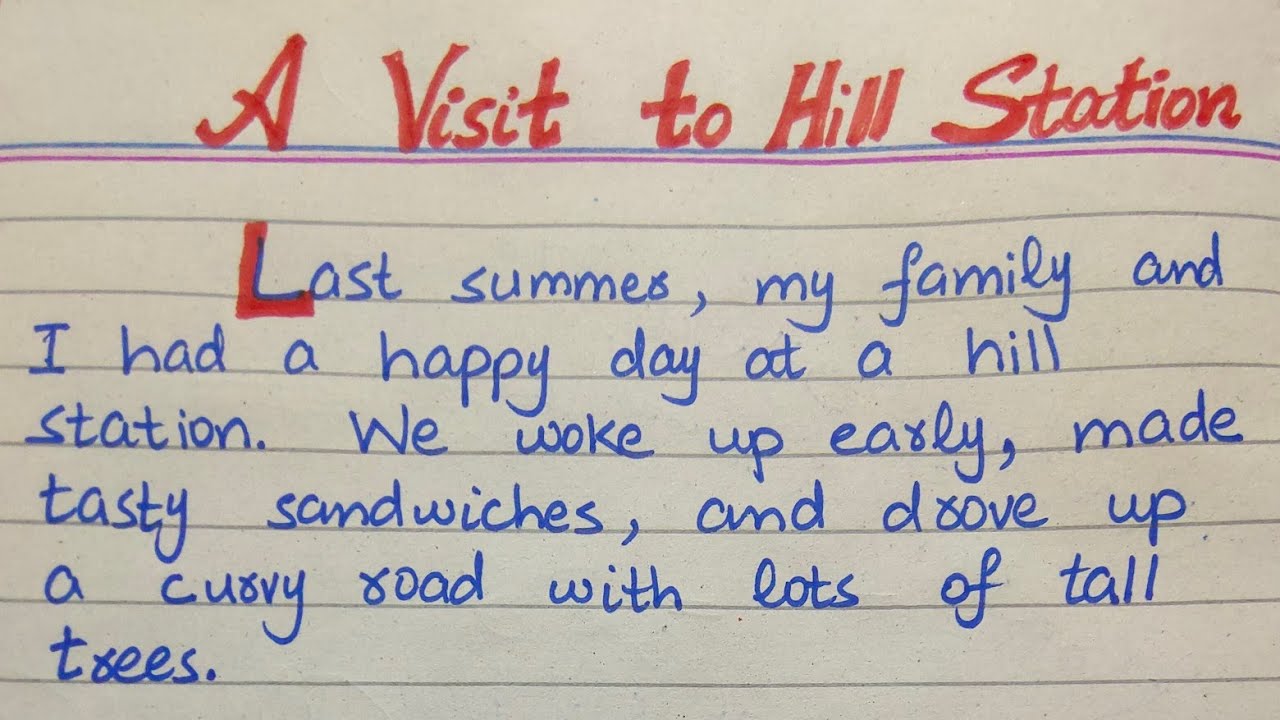 A Visit to Hill Station
Last summer, my family and
I had a happy day at a hill
station. We woke up early, made
tasty sandwiches, and drove up
a curvy road with lots of tall
trees.